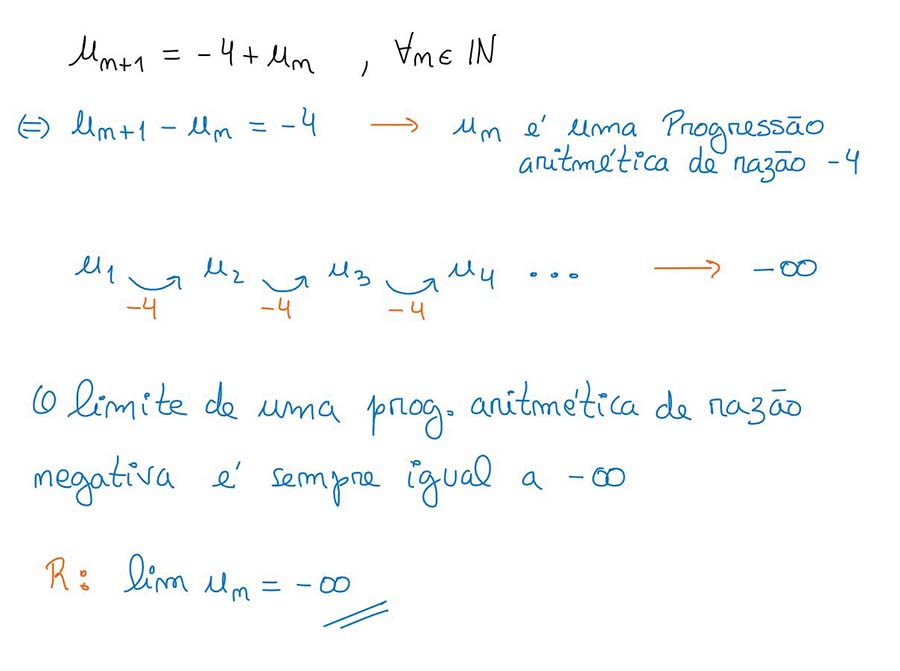 u_{n+1} = -4 + u_n , ∀n ∈ ℕ
⇔ u_{n+1} - u_n = -4 → u_n é uma Progressão
aritmética de razão -4
u_1 u_2 u_3 u_4 ... → -∞
-4 -4 -4
O limite de uma prog. aritmética de razão
negativa é sempre igual a -∞
R: lim u_n = -∞